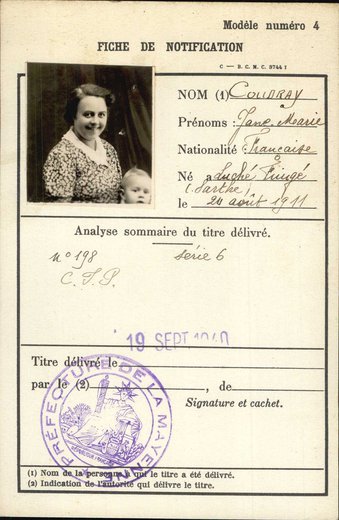 Modèle numéro 4
FICHE DE NOTIFICATION
C — B. C. M. C. 3744 I
NOM (1) COUDRAY
Prénoms : Jane Marie
Nationalité : Française
Né à Luché Pringé
(Sarthe)
le 24 août 1911
Analyse sommaire du titre délivré.
n° 198 série 6
C.I.P.
19 SEPT 1940
Titre délivré le
par le (2) , de
Signature et cachet.
PRÉFECTURE DE LA MAYENNE
(1) Nom de la personne à qui le titre a été délivré.
(2) Indication de l'autorité qui délivre le titre.